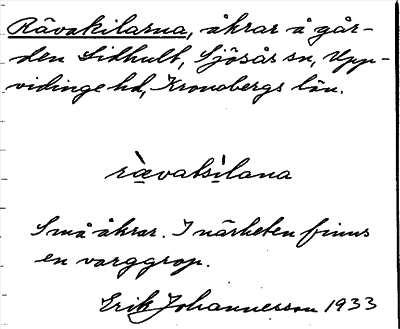 Rävakilarna, åkrar å går-
den Lidhult, Sjösås sn, Upp-
vidinge hd, Kronobergs län.
ràvatsìlana
Små åkrar. I närheten finns
en varggrop.
Erik Johannesson 1933